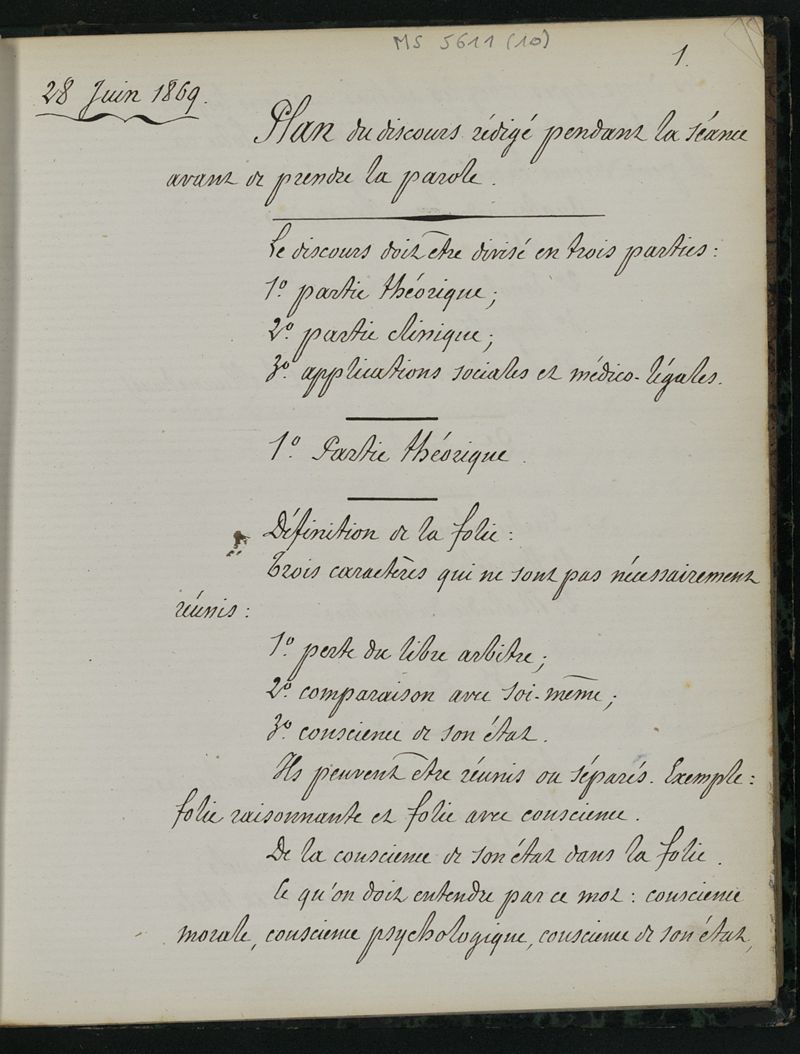 MS 5611 (10)
1.
28 Juin 1869.
Plan du discours rédigé pendant la séance
avant de prendre la parole.
Le discours doit être divisé en trois parties :
1º partie théorique ;
2º partie clinique ;
3º applications sociales et médico-légales.
1º Partie théorique
Définition de la folie :
Trois caractères qui ne sont pas nécessairement
réunis :
1º perte du libre arbitre ;
2º comparaison avec soi-même ;
3º conscience de son état.
Ils peuvent être réunis ou séparés. Exemple :
folie raisonnante et folie avec conscience.
De la conscience de son état dans la folie.
Ce qu'on doit entendre par ce mot : conscience
morale, conscience psychologique, conscience de son état,